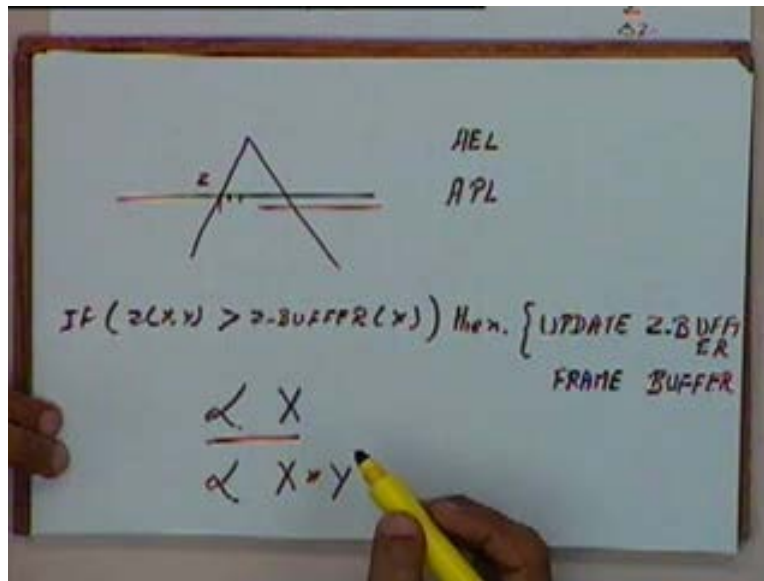 AEL
z
APL
IF (z(x,y) > z-BUFFER(x)) then. { UPDATE Z.BUFF
ER
FRAME BUFFER
α X
α X * Y